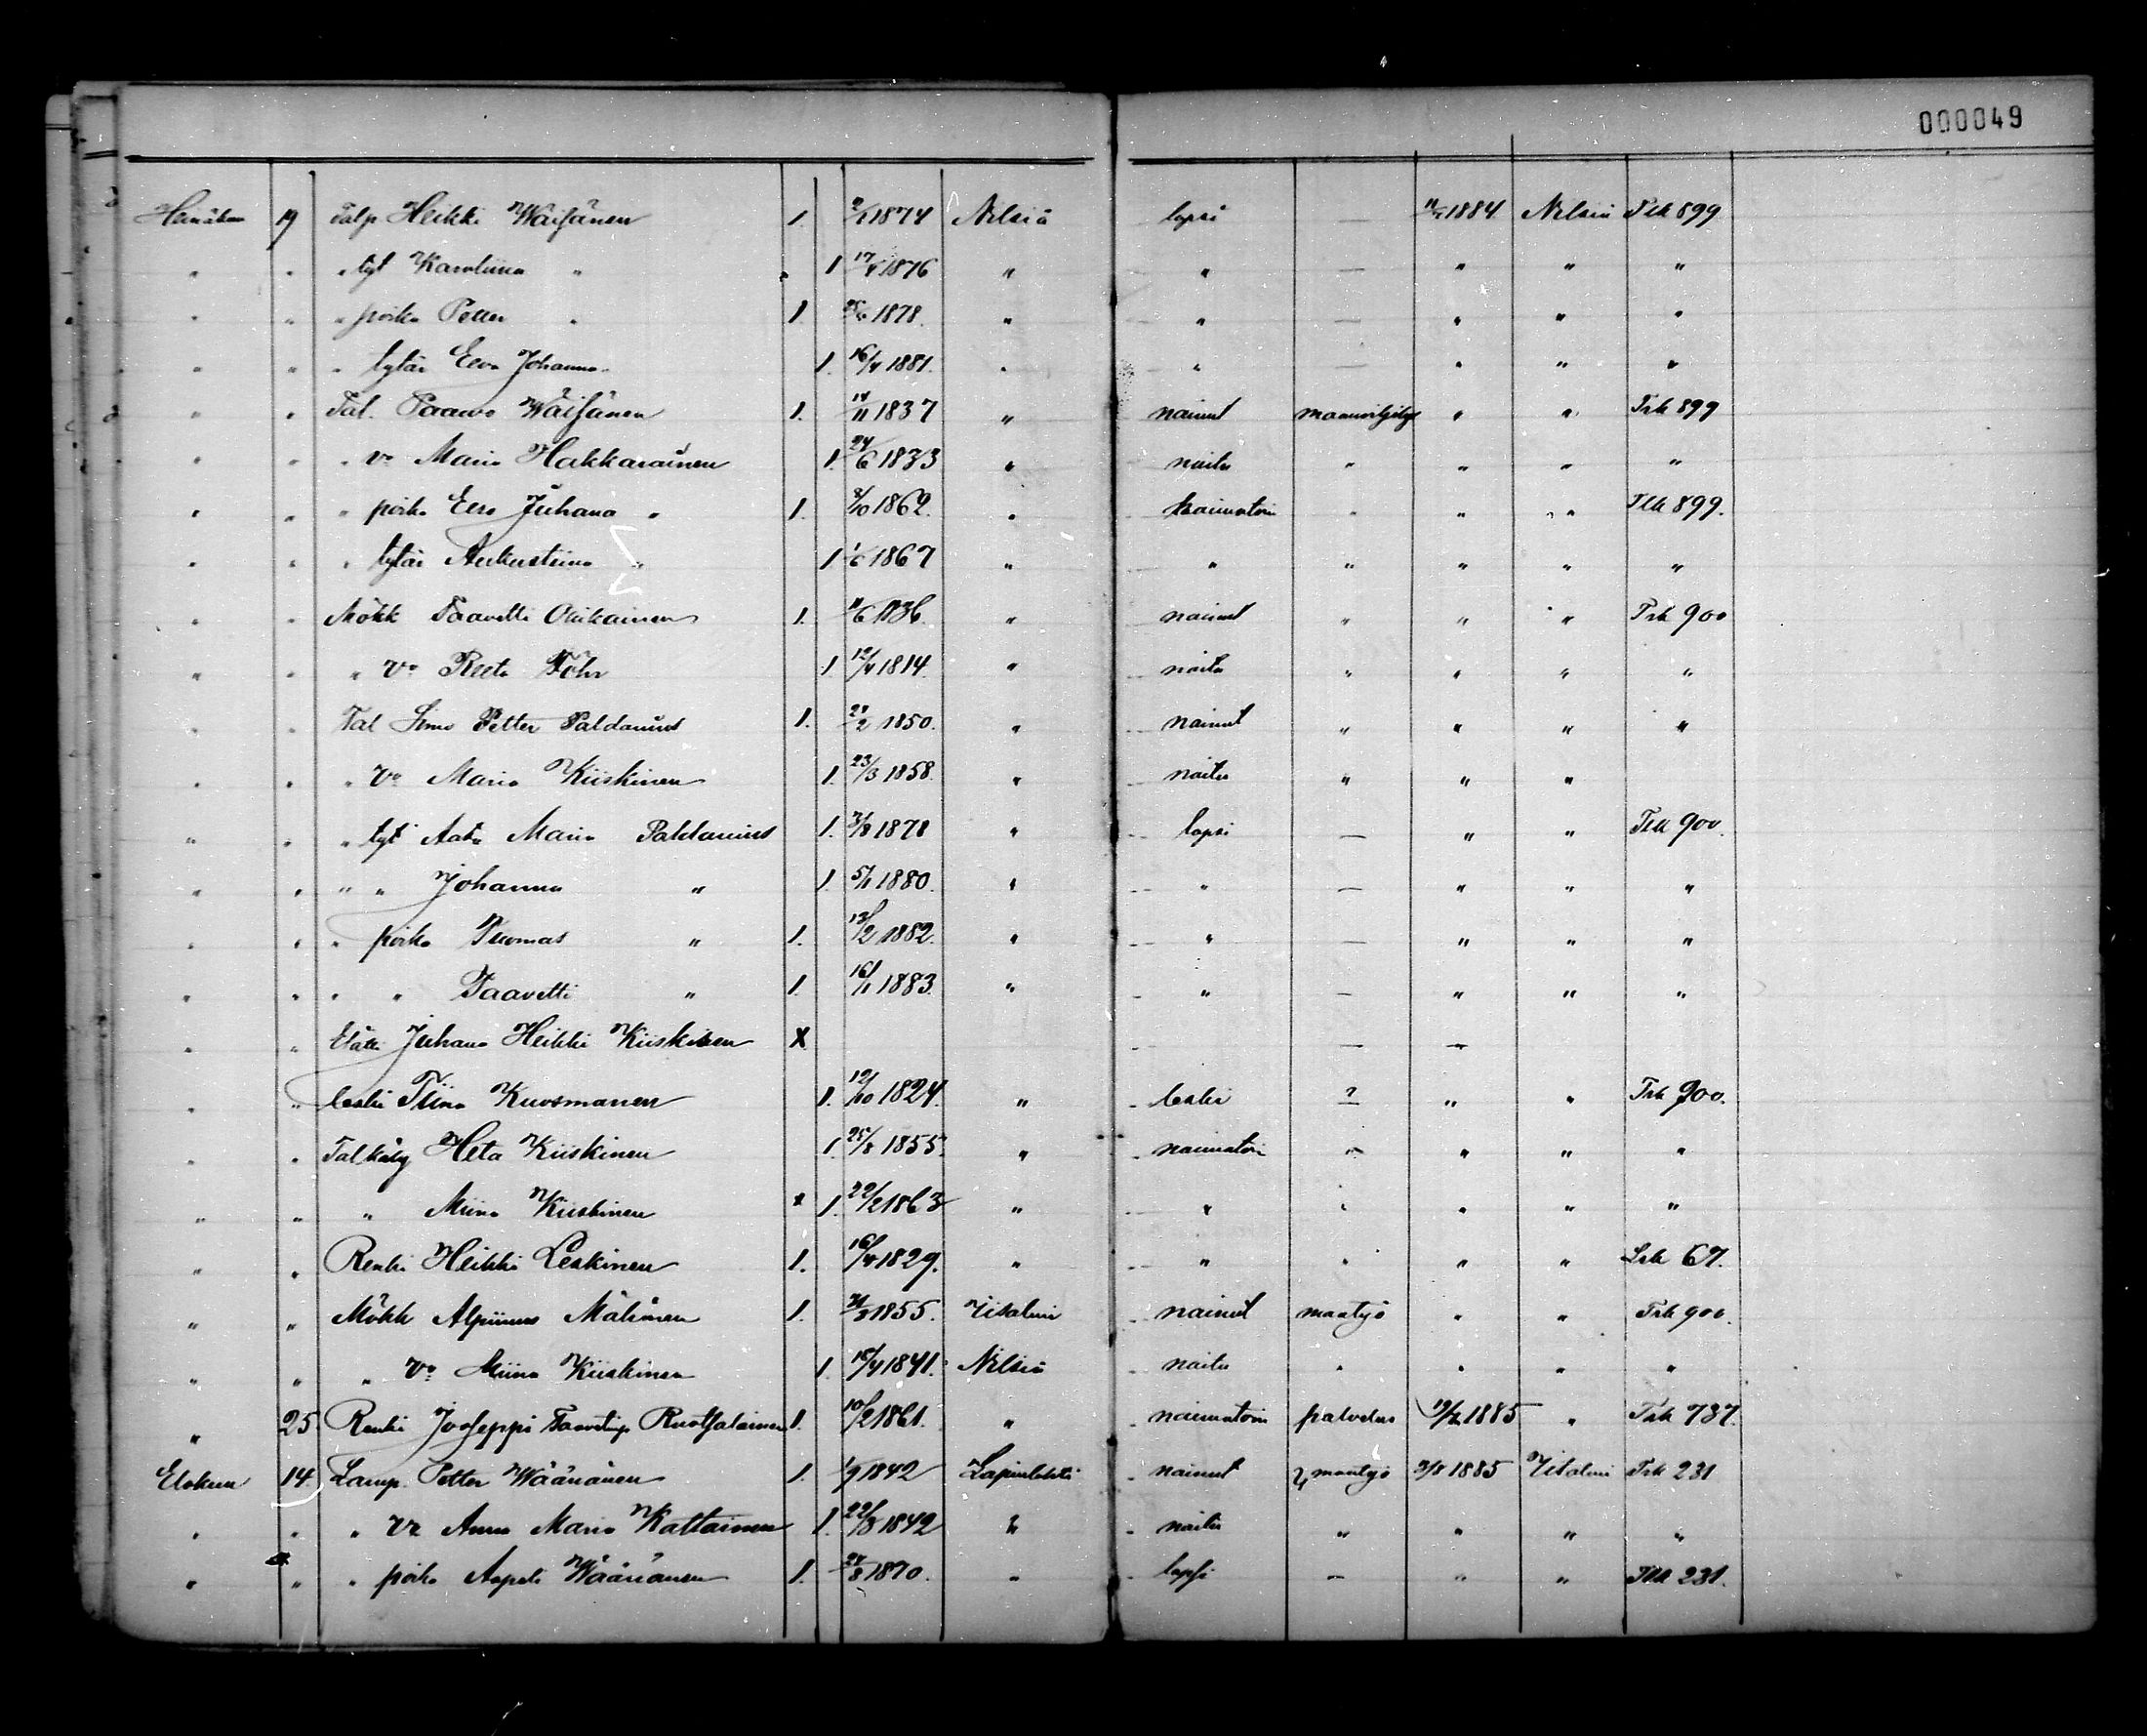 000049
Heinäkun 19 Talp Heikki Wäisänen 1. 1874 Nilsiä lapsi — 1884 Nilsiä Tlk 899
" " " tyt Karoliina " 1 17/4 1876 " " — " " "
" " " poika Petter " 1. 1878. " " — " " "
" " " tytär Eeva Johanna 1. 16/4 1881. " " — " " "
" " Tal. Paavo Wäisänen 1. 14/11 1837 " nainut maanviljelys " " Trk 899
" " " vo Maria Hakkarainen 1. 24/6 1833 " naitu " " " "
" " " poika Eero Juhana " 1. 8/10 1862. " naimatoin " " " Tlk 899.
" " " tytär Aukustiina " 1 1/6 1867 " " " " " "
" " Mökk Taavetti Olikainen 1. 11/6 1836. " nainut " " " Trk 900
" " " vo Reeta Föhr 1 12/4 1814. " naitu " " " "
" " Tal Simo Petter Paldanius 1. 28/2 1850. " nainut " " " "
" " " Vo Maria Kiiskinen 1. 23/3 1858. " naitu " " "
" " " tyt Aata Maria Paldanius 1. 3/8 1878 " lapsi — " " Tlk 900.
" " " " Johanna " 1. 5/1 1880. " " — " " "
" " " poika Tuomas " 1. 13/2 1882. " " — " " "
" " " " Taavetti " 1. 16/1 1883. " " — " " "
" " Elätti Juhana Heikki Kiiskinen X — —
" " leski Tiina Kuosmanen 1. 12/10 1824. " leski ? " " Trk 900.
" " Tal käly Heta Kiiskinen 1. 25/8 1855. " naimatoin " " " "
" " " Miina Kiiskinen x 1. 22/2 1863 " " " " " "
" " Renki Heikki Leskinen 1. 16/4 1829. " " " " " Srk 67.
" " Mökk Alpiinus Mälinen 1. 31/3 1855. Iisalmi nainut maatyö " " Trk 900.
" " " Vo Miina Kiiskinen 1. 18/4 1841. Nilsiä naitu " " " "
" 25. Renki Jooseppi Taavetinp Ruotsalainen 1. 10/2 1861. " naimatoin palvelus 19/7 1885 " Trk 737.
Elokuu 14. Lamp. Petter Wäänänen 1. 1/9 1842 Lapinlahti nainut maatyö 3/8 1885 Iisalmi Trk 231
" " " vo Anna Maria Kattainen 1. 22/3 1842 " naitu " " " "
" " " poika Aapeli Wäänänen 1. 28/8 1870. " lapsi — " " Tlk 231.